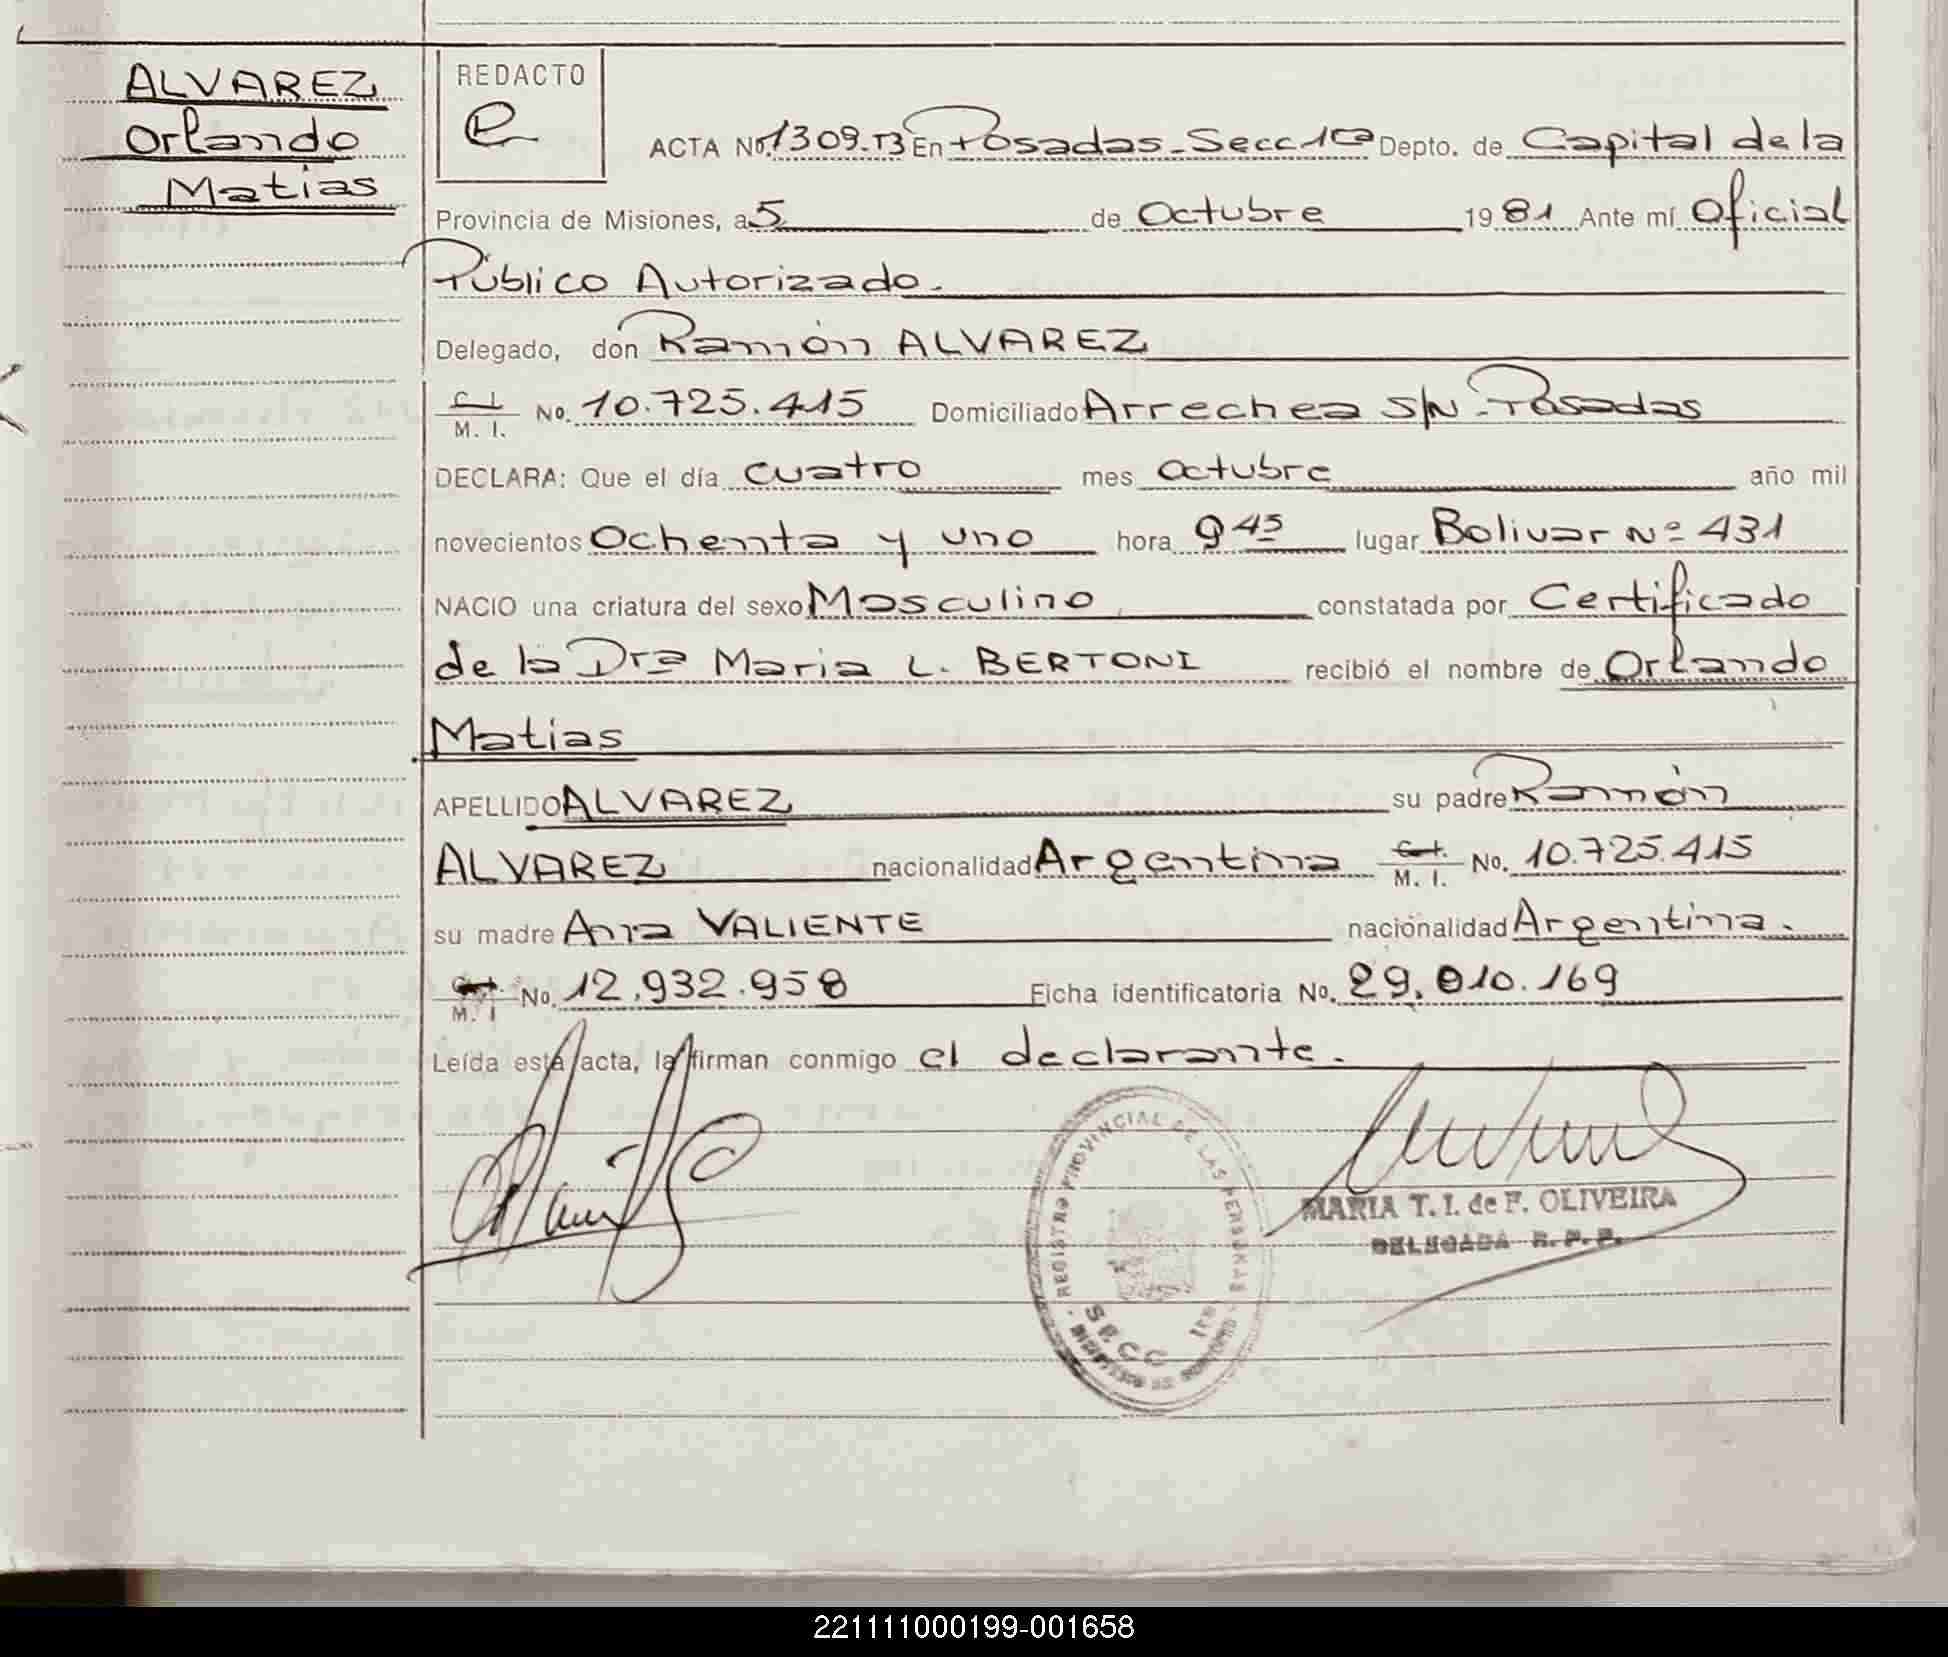 ALVAREZ
Orlando
Matias
REDACTO
e
ACTA No. 1309-T3 En Posadas-Secc 1ca Depto. de Capital de la
Provincia de Misiones, a 5 de Octubre 1981 Ante mí Oficial
Público Autorizado.
Delegado, don Ramón ALVAREZ
C. I.
M. I. No. 10.725.415 Domiciliado Arrechea S/N-Posadas
DECLARA: Que el día cuatro mes octubre año mil
novecientos Ochenta y uno hora 9 45 lugar Bolivar Nº 431
NACIO una criatura del sexo Masculino constatada por Certificado
de la Dra Maria L. BERTONI recibió el nombre de Orlando
Matias
APELLIDO ALVAREZ su padre Ramón
ALVAREZ nacionalidad Argentina C. I.
M. I. No. 10.725.415
su madre Ana VALIENTE nacionalidad Argentina.
C. I.
M. I No. 12.932.958 Ficha identificatoria No. 29.010.169
Leída esta acta, la firman conmigo el declarante.
REGISTRO PROVINCIAL DE LAS PERSONAS
SECC 1ra
MARIA T. I. de F. OLIVEIRA
DELEGADA R. P. P.
221111000199-001658